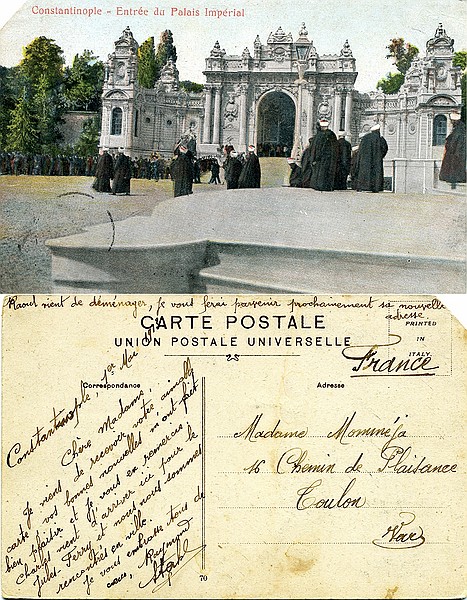 Constantinople - Entrée du Palais Impérial
Raoul vient de déménager, je vous ferai parvenir prochainement sa nouvelle
adresse
CARTE POSTALE
UNION POSTALE UNIVERSELLE
28
PRINTED
IN
ITALY
France
Correspondance
Adresse
Constantinople, 1er Mai
Chère Madame,
Je viens de recevoir votre aimable
carte vos bonnes nouvelles m'ont fait
bien plaisir et je vous en remercie.
Charles vient d'arriver ici pour le
Jules-Ferry et nous nous sommes
rencontrés en ville.
Je vous embrasse tous de
Raymond
Madame Mominéja
16 Chemin de Plaisance
Toulon
Var
70